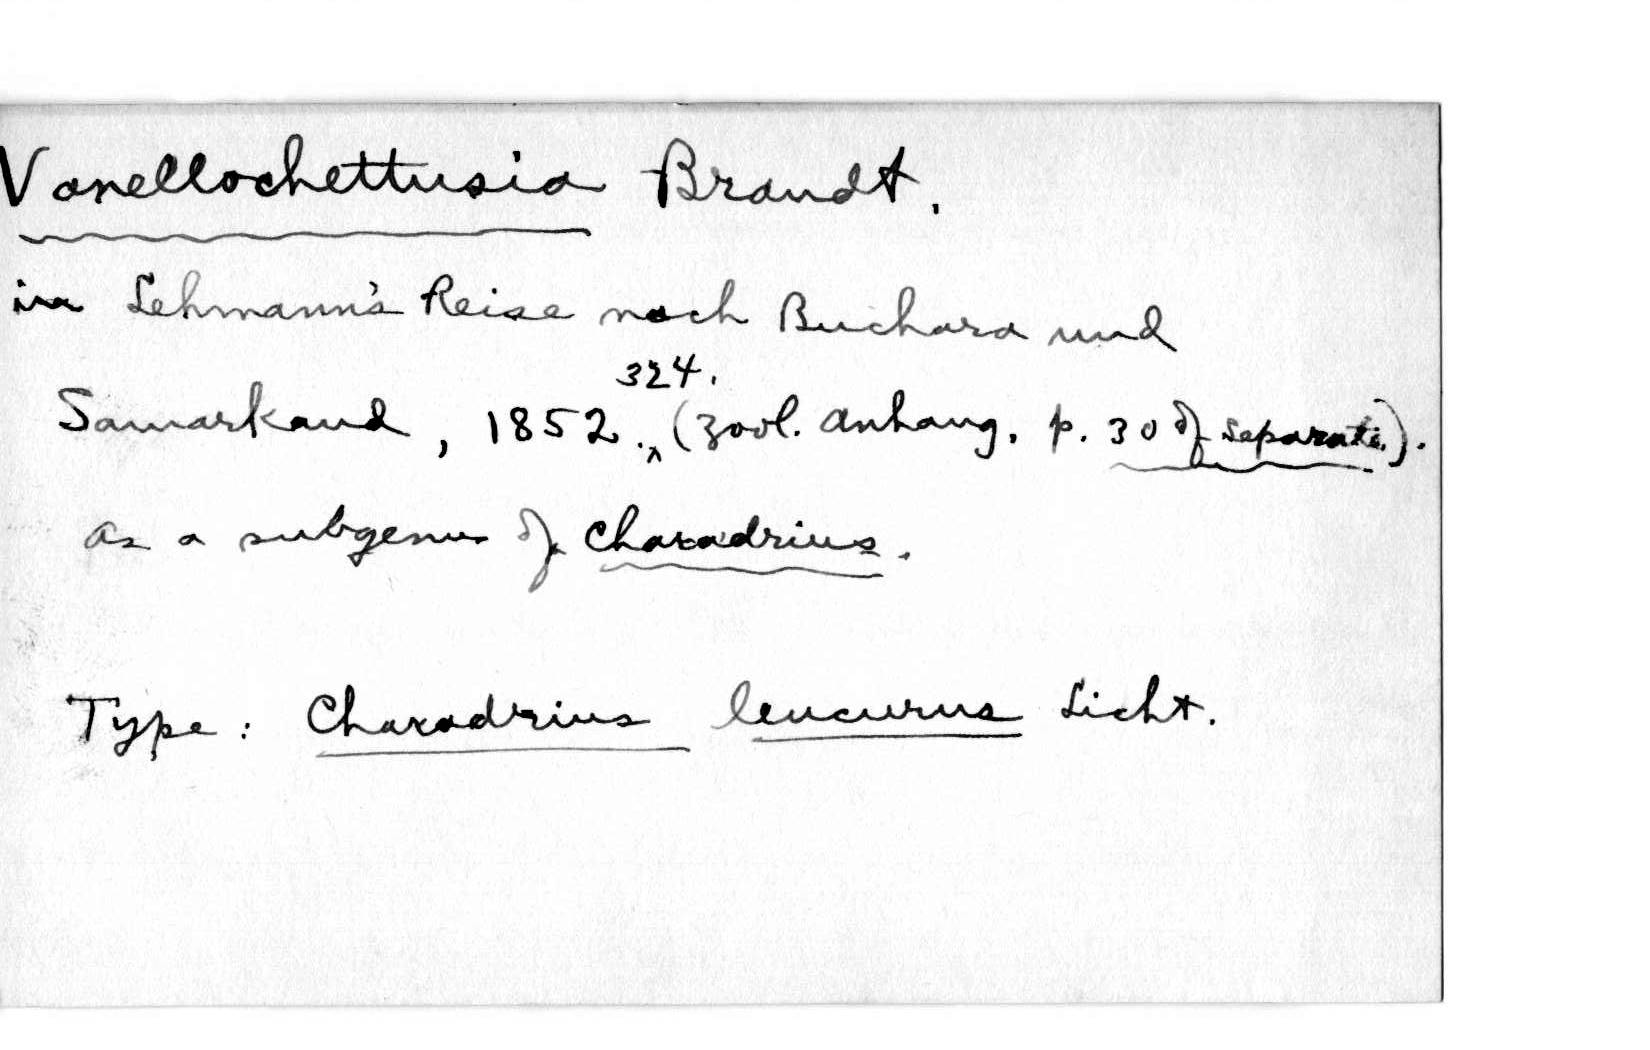 Vanellochettusia Brandt.
in Lehmann's Reise nach Buchara und
324.
Samarkand, 1852.‸ (Zool. Anhang. p. 30 of separate).
as a subgenus of Charadrius.
Type: Charadrius leucurus Licht.